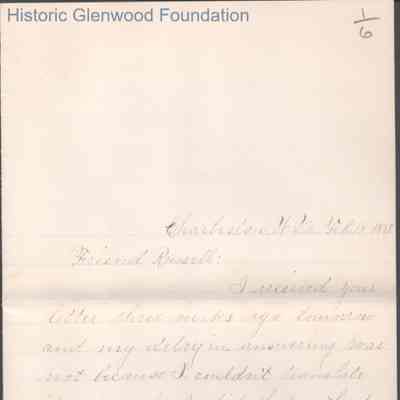 Historic Glenwood Foundation
1/6
Charleston W. Va. Feb.
Friend Russell:
I received your
letter three weeks ago tomorrow
and my delay in answering was
not because I couldn't translate